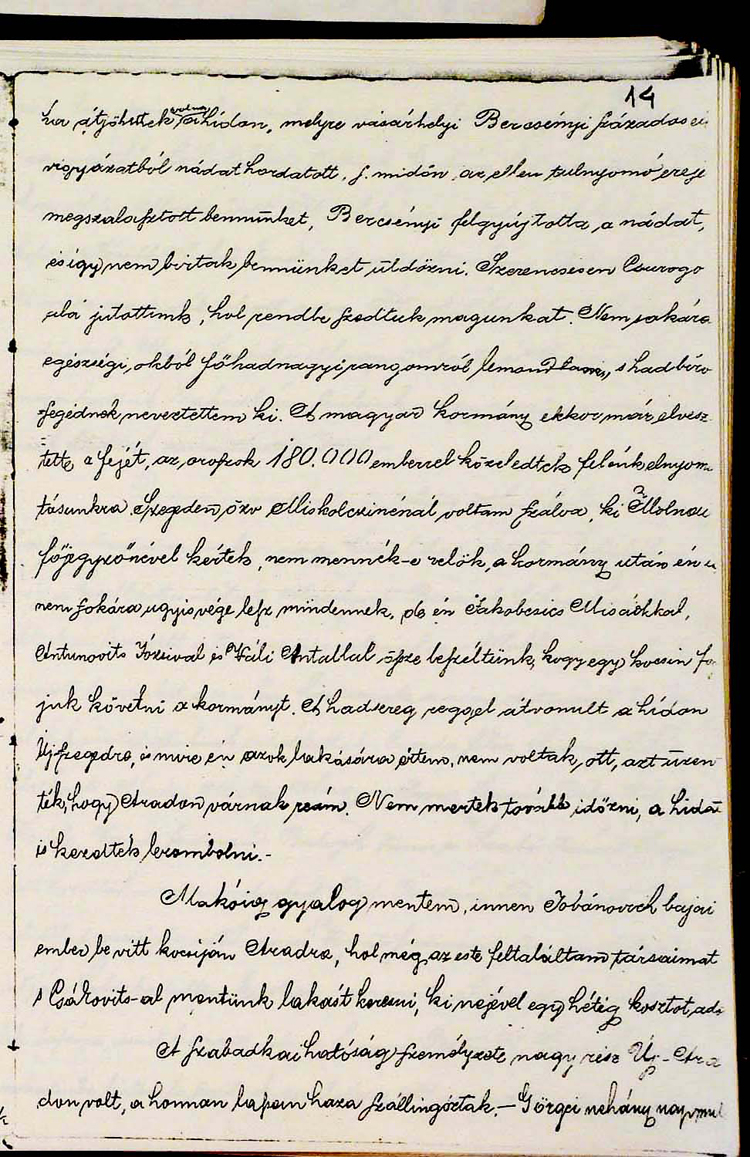 14
ha átjöhettek volna a hídon, melyre vásárhelyi Bercsényi százados el
vigyázatból nádat hordatott, s midőn az ellen tulnyomó ereje
megszalasztott bennünket, Bercsényi felgyújtotta a nádat,
és így nem birtak bennünket üldözni. Szerencsésen Csurogo
alá jutottunk, hol rendbe szedtuk magunkat. Nem sokára
egészségi okból főhadnagyi rangomról lemondtam, s hadbíro
segédnek neveztettem ki. A magyar kormány ekkor már elvesz
tette a fejét, az oroszok 180.000 emberrel közeledtek felénk elnyom
tásunkra. Szegeden özv Miskolczinénál voltam szálva, ki Molnár
főjegyzőnével kértek, nem mennék-e velök a kormány után én
nem sokára ugyis vége lesz mindennek, de én Jakobcsics Misákkal,
Antunovits Józsival és Váli Antallal össze beszéltünk, hogy egy kocsin fo
juk követni a kormányt. A hadsereg reggel átvonult a hídon
Ujszegedre, és mire én azok lakására értem, nem voltak ott, azt üzen
ték, hogy Aradon várnak reám. Nem mertek tovább időzni, a hidat
is kezdték lerombolni.-
Makóig gyalog mentem, innen Jobánovich bajai
ember be vitt kocsiján Aradra, hol még az este feltaláltam társaimat
s Csákovits-al mentünk lakást keresni, ki nejével egy hétig kosztot ado
A szabadkai hatóság személyzete nagy rész Uj-Ara
don volt, a honnan lassan haza szállingóztak.- Görgei nehány nap mul